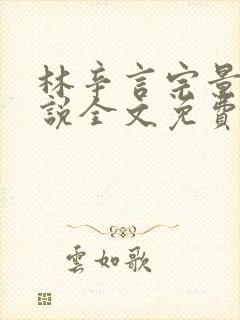 林辛言宗景
說全文免費
雲如歌